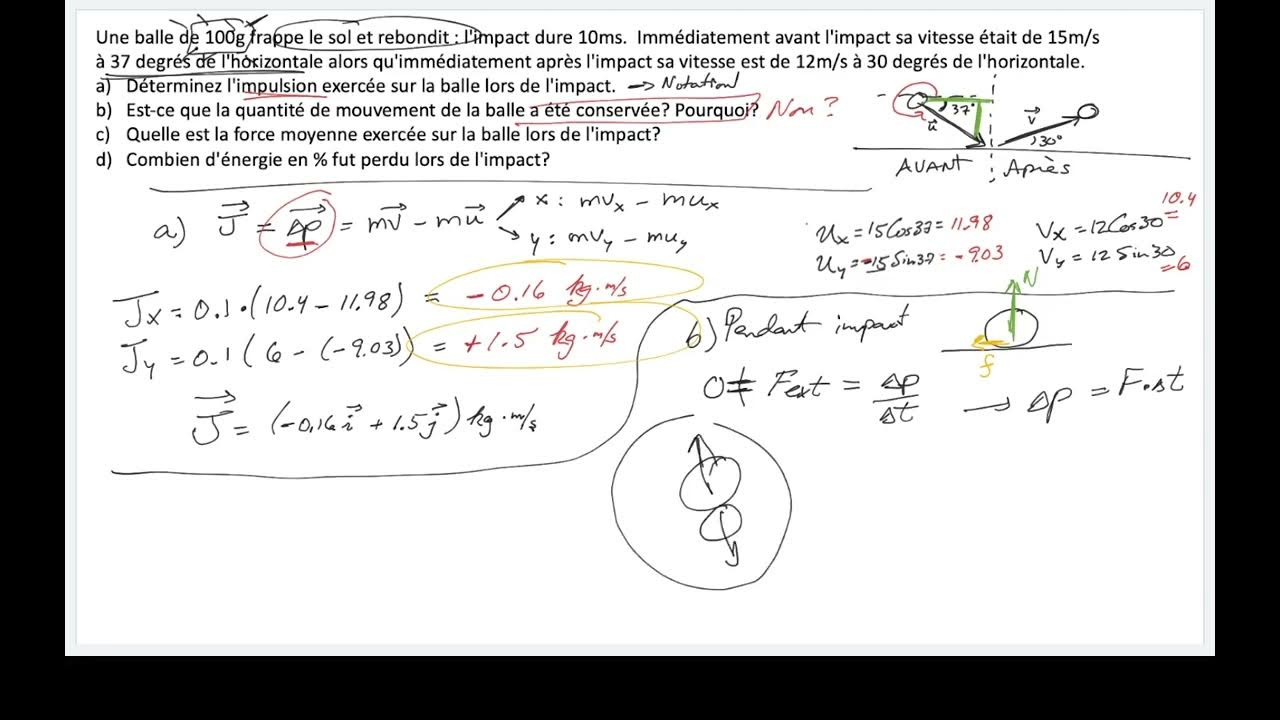 Une balle de 100g frappe le sol et rebondit : l'impact dure 10ms. Immédiatement avant l'impact sa vitesse était de 15m/s
à 37 degrés de l'horizontale alors qu'immédiatement après l'impact sa vitesse est de 12m/s à 30 degrés de l'horizontale.
a) Déterminez l'impulsion exercée sur la balle lors de l'impact. → Notation
b) Est-ce que la quantité de mouvement de la balle a été conservée? Pourquoi? Non ?
c) Quelle est la force moyenne exercée sur la balle lors de l'impact?
d) Combien d'énergie en % fut perdu lors de l'impact?
37° u⃗ v⃗ 30°
AVANT Après
a) J⃗ = Δp⃗ = mv⃗ - mu⃗
x : mvₓ - muₓ
y : mv_y - mu_y
Uₓ = 15Cos37 = 11.98
U_y = -15Sin37 = -9.03
Vₓ = 12Cos30 = 10.4
V_y = 12 Sin30 = 6
Jₓ = 0.1 · (10.4 - 11.98) = -0.16 kg·m/s
J_y = 0.1 (6 - (-9.03)) = +1.5 kg·m/s
J⃗ = (-0.16 i⃗ + 1.5 j⃗) kg·m/s
b) Pendant impact
N
f
0 ≠ Fext = Δp/Δt → Δp = F·Δt